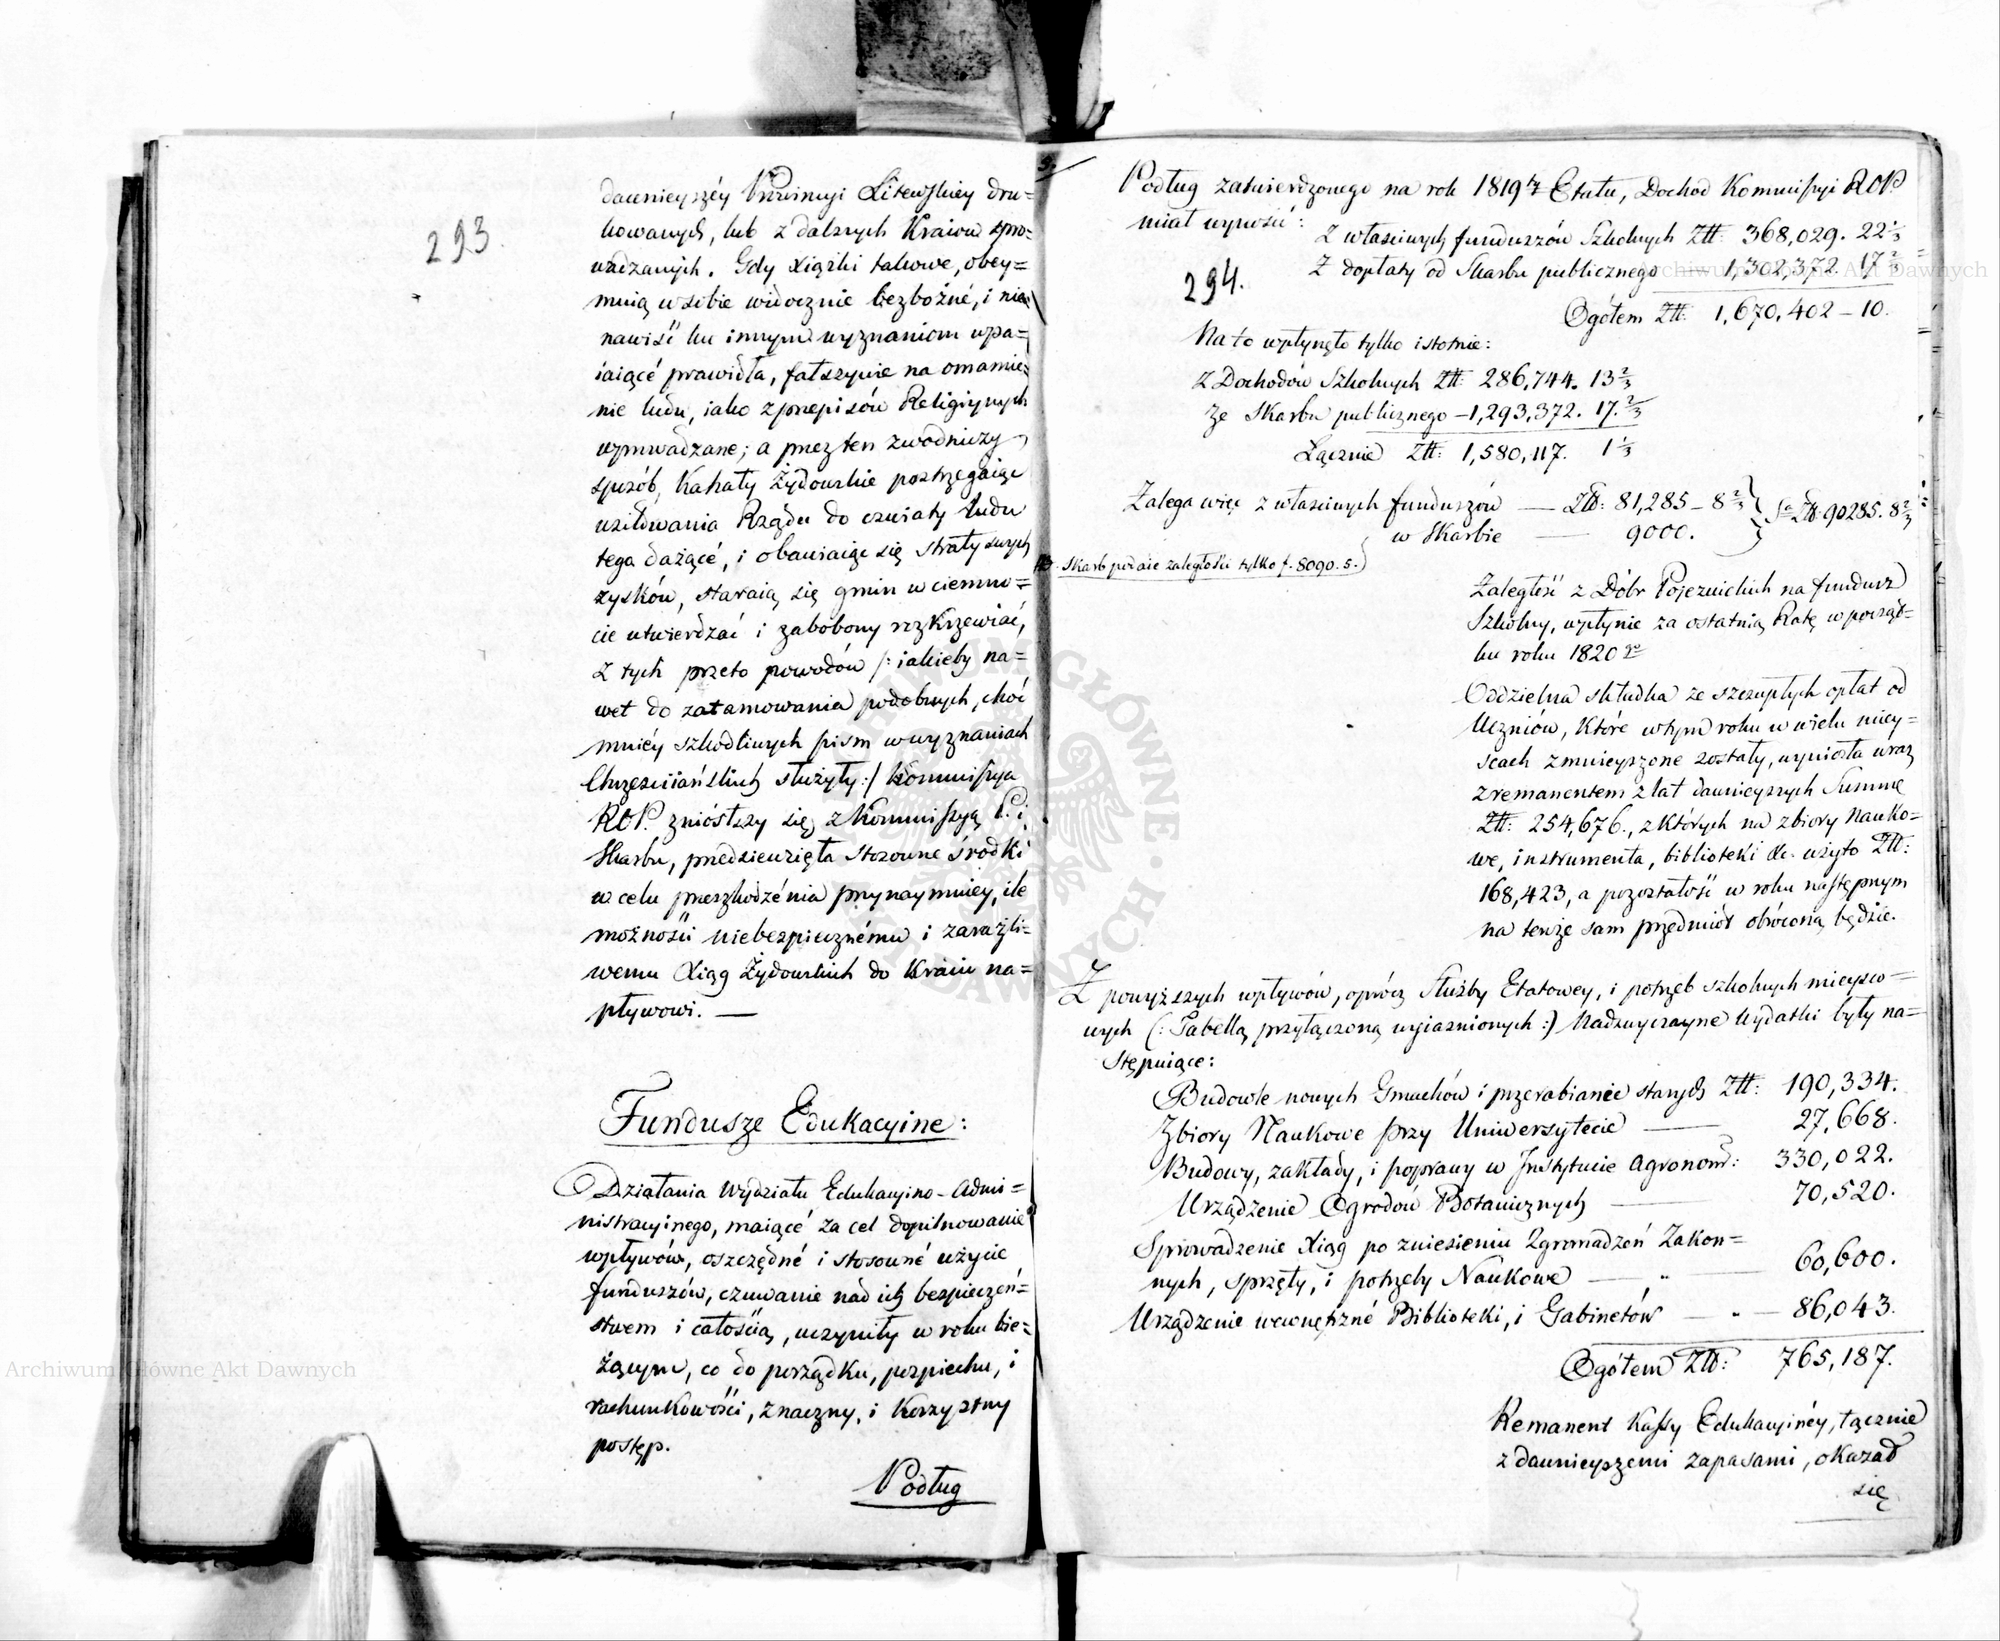 293.
dawnieyszéy Prowincyi Litewskiey dru=
kowanych, lub z dalszych Kraiow spro=
wadzanych. Gdy Xiążki takowe, obey=
muią w sobie widocznie bezbożné, i nie=
nawiść ku innym wyznaniom wpa=
iaiącé prawidła, fałszywie na omamie=
nie ludu, iako z przepisów Religiynych
wyprowadzane; a przez ten zwodniczy
sposób, Kahały Żydowskie postrzegaiąc
usiłowania Rządu do oswiaty ludu
tego dążącé, i obawiaiąc się straty swych
zysków, staraią się gmin w ciemno=
cie utwierdzać i zabobony rozkrzewiać,
z tych przeto powodów /: iakieby na=
wet do zatamowania podobnych, choć
mniéy szkodliwych pism w wyznaniach
Chrześciańskich służyły :/ Kommissya
ROP. zniósłszy się z Kommissyą P. i
Skarbu, przedsięwzięła stosowne środki
w celu przeszkodzénia przynaymniey, ile
możności niebezpiecznému i zaraźli=
wemu Xiąg Żydowskich do Kraiu na=
pływowi. —
Fundusze Edukacyine:
Działania Wydziału Edukacyino-Admi=
nistracyinego, maiącé za cel dopilnowanie
wpływów, oszczędné i stosowné użycie
funduszów, czuwanie nad ich bezpieczeń=
stwem i całością, uczyniły w roku bie=
żącym, co do porządku, pospiechu, i
rachunkowości, znaczny, i korzystny
postęp.
Podług
Podług zatwierdzonego na rok 1819 Etatu, Dochod Kommissyi ROP.
miał wynosić:
z własciwych funduszów Szkolnych Złł: 368,029. 22 1/3
z dopłaty od Skarbu publicznego 1,302,372. 17 2/3
294.
Ogółem Złł: 1,670,402 – 10.
Na to wpłynęło tylko istotnie:
z Dochodów Szkolnych Złł: 286,744. 13 2/3
ze Skarbu publicznego – 1,293,372. 17. 2/3
Łącznie Złł: 1,580,117. 1 1/3
Zalega więc z własciwych funduszów — Złł: 81,285 – 8 2/3
w Skarbie — 9000.
Złł. 90285. 8 2/3
NB. Skarb podaie zaległości tylko f. 8090. 5.
Zaległość z Dóbr Pojezuickich na fundusz
Szkolny, wpłynie za ostatnią Ratę w począt=
ku roku 1820
Oddzielna składka ze szczupłych opłat od
Uczniów, które w tym roku w wielu miey=
scach zmnieyszone zostały, wyniosła wraz
z remanentem z lat dawnieyszych Summę
Złł: 254,676., z których na zbiory Nauko=
we, instrumenta, biblioteki &c. użyto Złł:
168,423, a pozostałość w roku następnym
na tenże sam przedmiót obróconą będzie.
Z powyższych wpływów, oprócz Służby Etatowey, i potrzeb szkolnych mieysco=
wych (: Tabellą przyłączoną wyiasnionych :) Nadzwyczayne Wydatki były na=
stępuiące:
Budowle nowych Gmachów i przerabianie starych Złł: 190,334.
Zbiory Naukowe przy Uniwersytecie — 27,668.
Budowy, zakłady, i poprawy w Instytucie Agronom: 330,022.
Urządzenie Ogrodow Botanicznych — 70,520.
Sprowadzenie Xiąg po zniesieniu Zgromadzeń Zakon=
nych, sprzęty, i potrzeby Naukowe — „ — 60,600.
Urządzenie wewnętrzné Biblioteki, i Gabinetów — „ — 86,043.
Ogółem Złł: 765,187.
Remanent Kassy Edukacyinéy, łącznie
z dawnieyszemi zapasami, okazał
się
Archiwum Główne Akt Dawnych